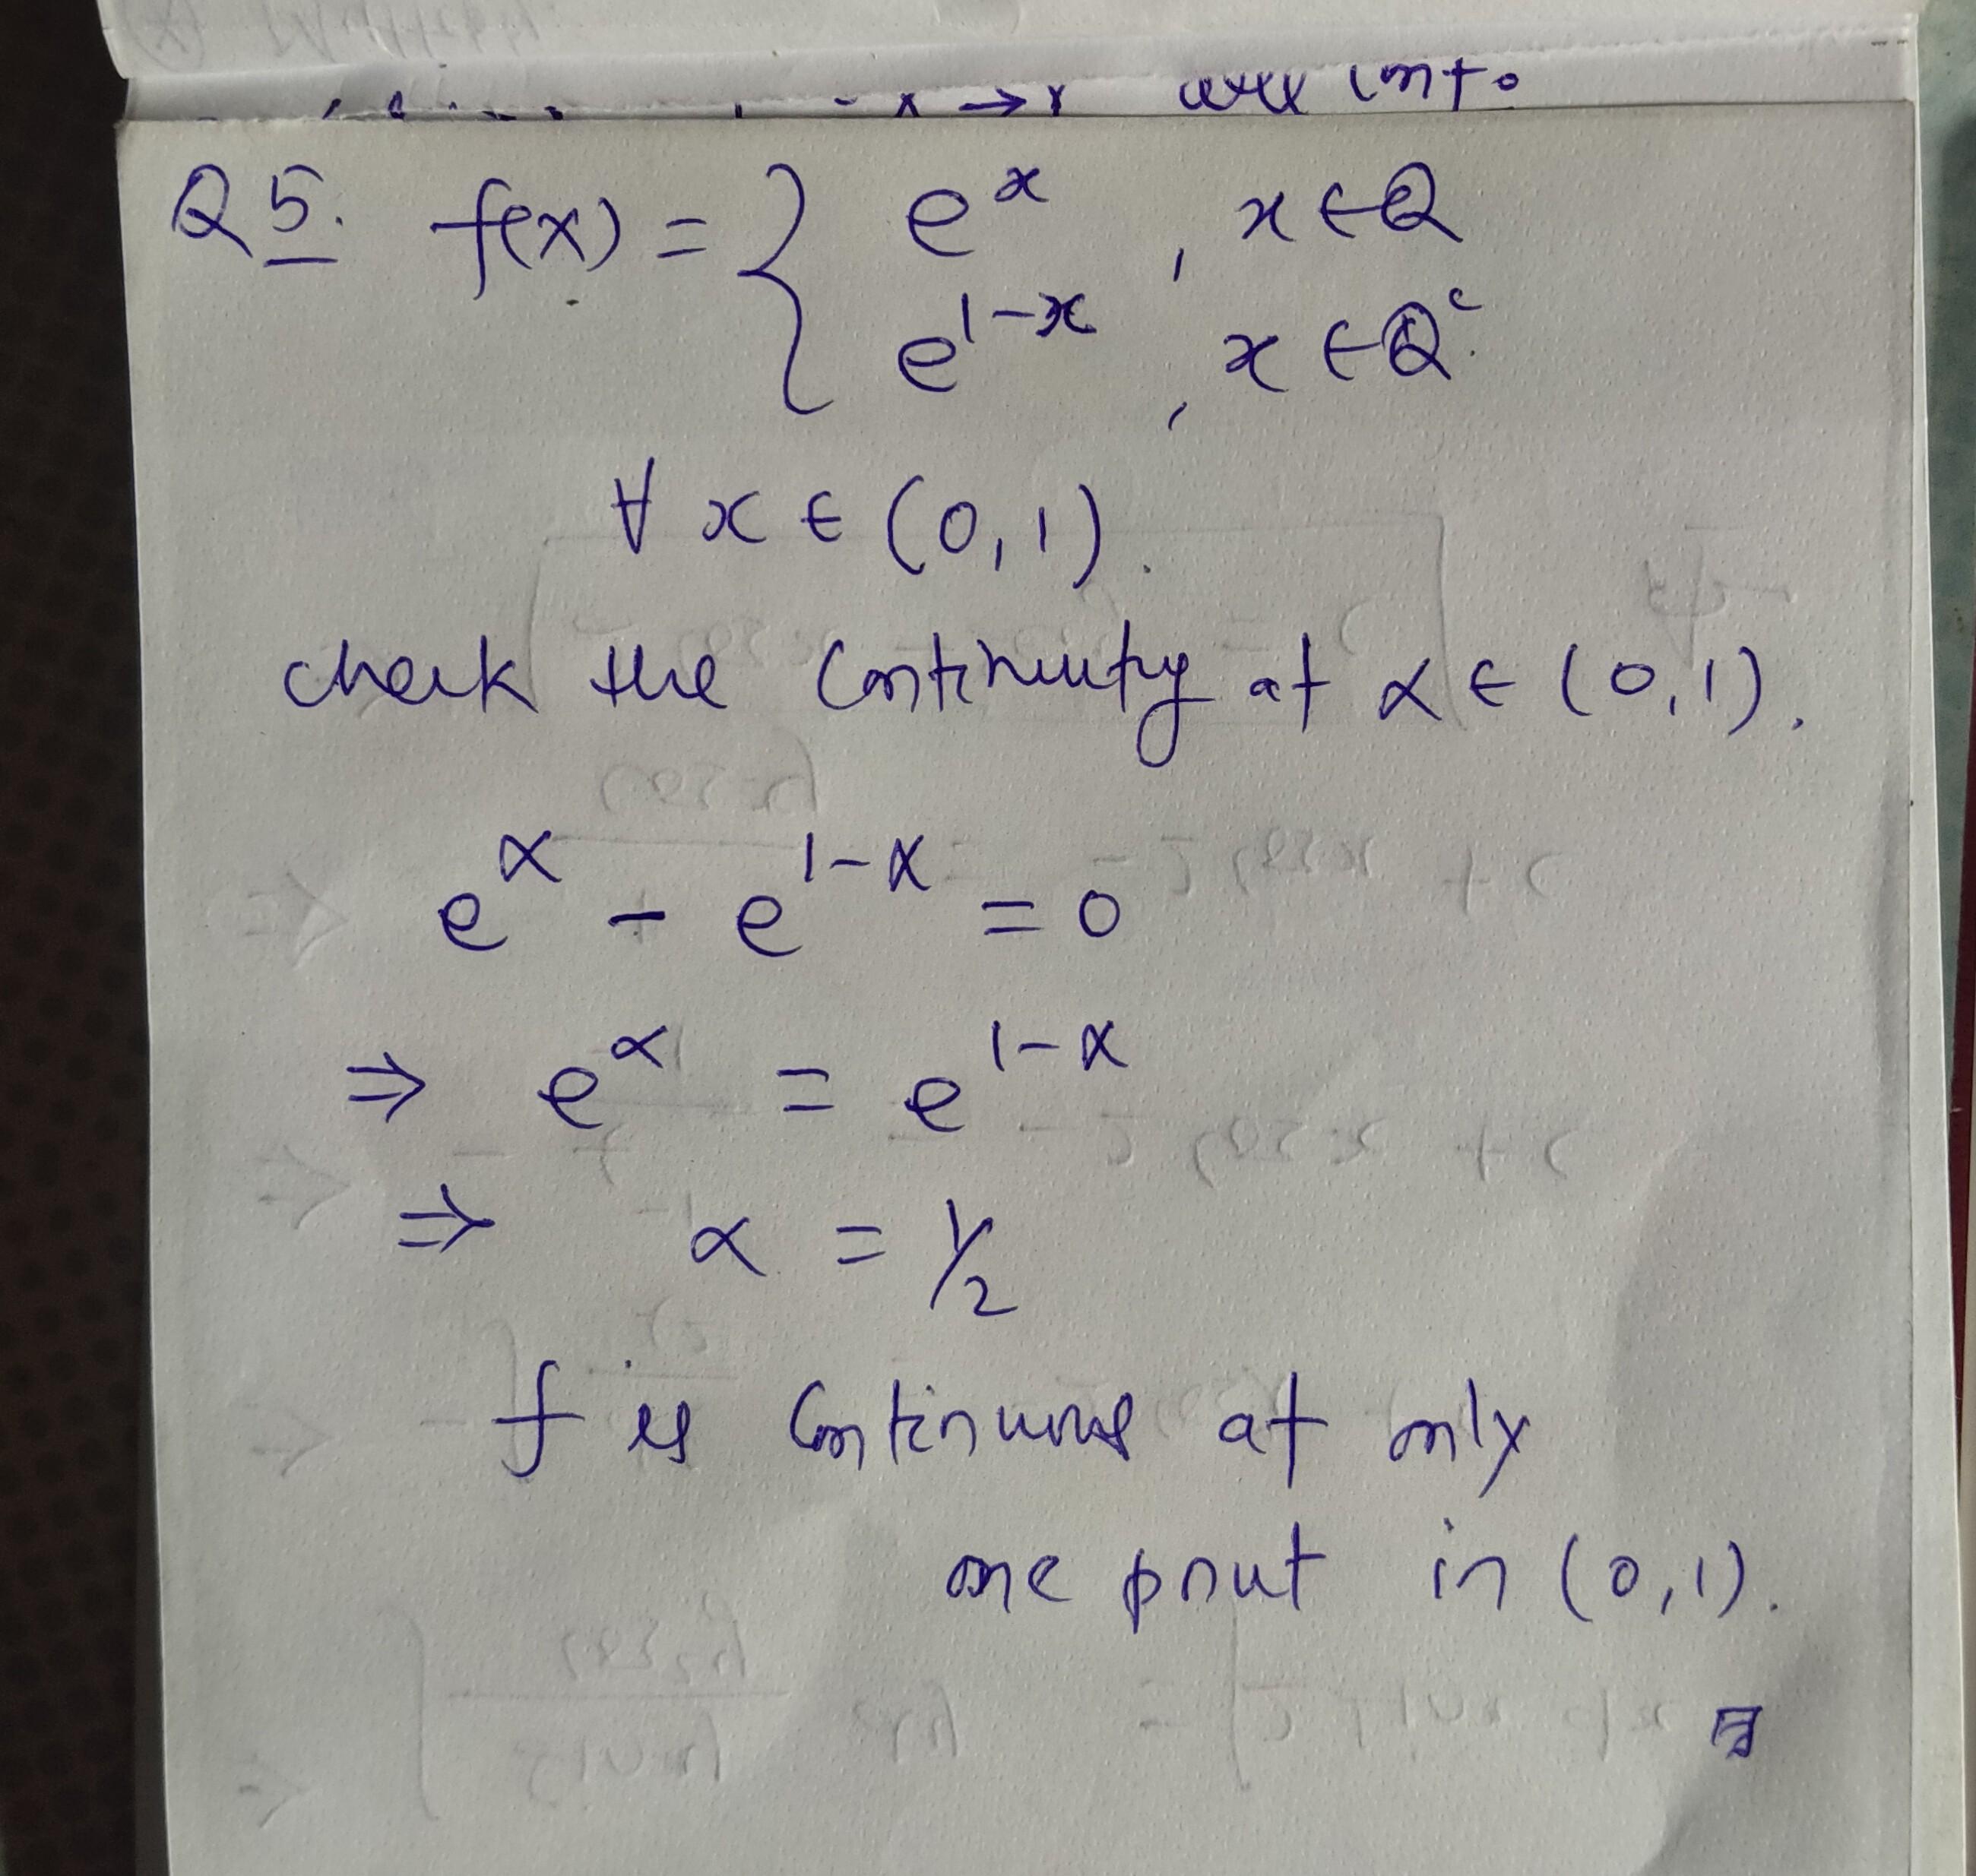 will (mto
Q5. f(x) = { e^x , x ∈ Q
e^{1-x} , x ∈ Q^c.
∀ x ∈ (0,1).
check the Continuity at α ∈ (0,1).
e^α - e^{1-α} = 0
⇒ e^α = e^{1-α}
⇒ α = 1/2
f is Continuous at only
one point in (0,1).